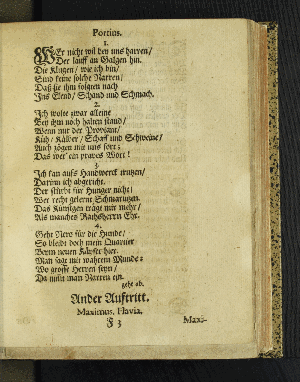 Portius.
1.
WEr nicht wil bey uns harren/
Der lauff an Galgen hin.
Die Klugen/ wie ich bin/
Sind keine solche Narren/
Daß sie ihm folgten nach
Ins Elend/ Schand und Schmach.
2.
Ich wolte zwar alleine
Bey ihm noch halten stand/
Wenn nur der Proviant/
Küh/ Kälber/ Schaff und Schweine/
Auch zögen mit uns fort;
Das wer ein praves Wort!
3.
Ich kan auffs Handwerck trutzen/
Darinn ich abgericht.
Der stirbt für Hunger nicht;
Wer recht gelernt Schmarutzen.
Das Künstgen trägt mir mehr/
Als manches Rathsherrn Ehr.
4.
Geht Nero für die Hunde/
So bleibt doch mein Quartier
Beym neuen Käyser hier.
Man sagt mit wahrem Munde:
Wo grosse Herren seyn/
Da nistn man Narren ein.
geht ab.
Ander Aufftritt.
Maximus. Flavia.
F 3
Maxi-